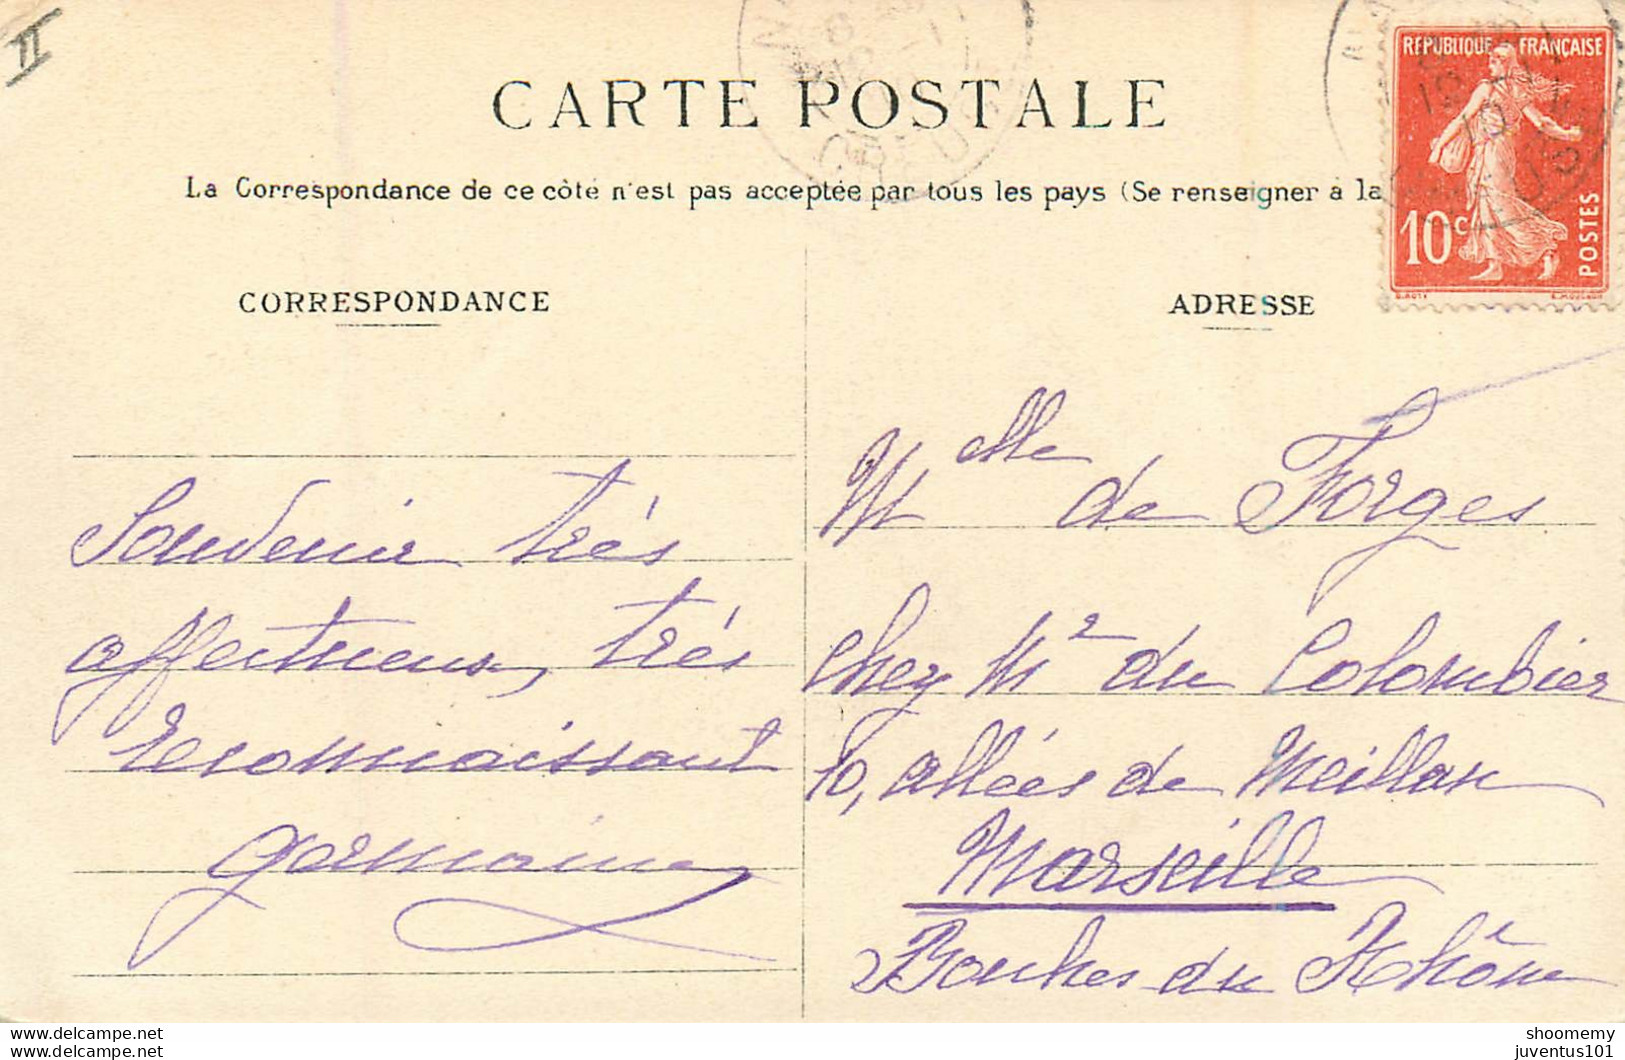 II
CARTE POSTALE
CREUSE
REPUBLIQUE FRANÇAISE
10c
POSTES
La Correspondance de ce côté n'est pas acceptée par tous les pays (Se renseigner à la
CORRESPONDANCE
ADRESSE
Souvenir très
affectueux, très
reconnaissant
germaine
Melle de Forges
chez Mr du Colombier
10, allées de Meillan
Marseille
Bouches du Rhône
shoomemy
juventus101